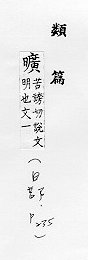 類篇
曠
苦謗切說文
明也文一
(日部·P235)